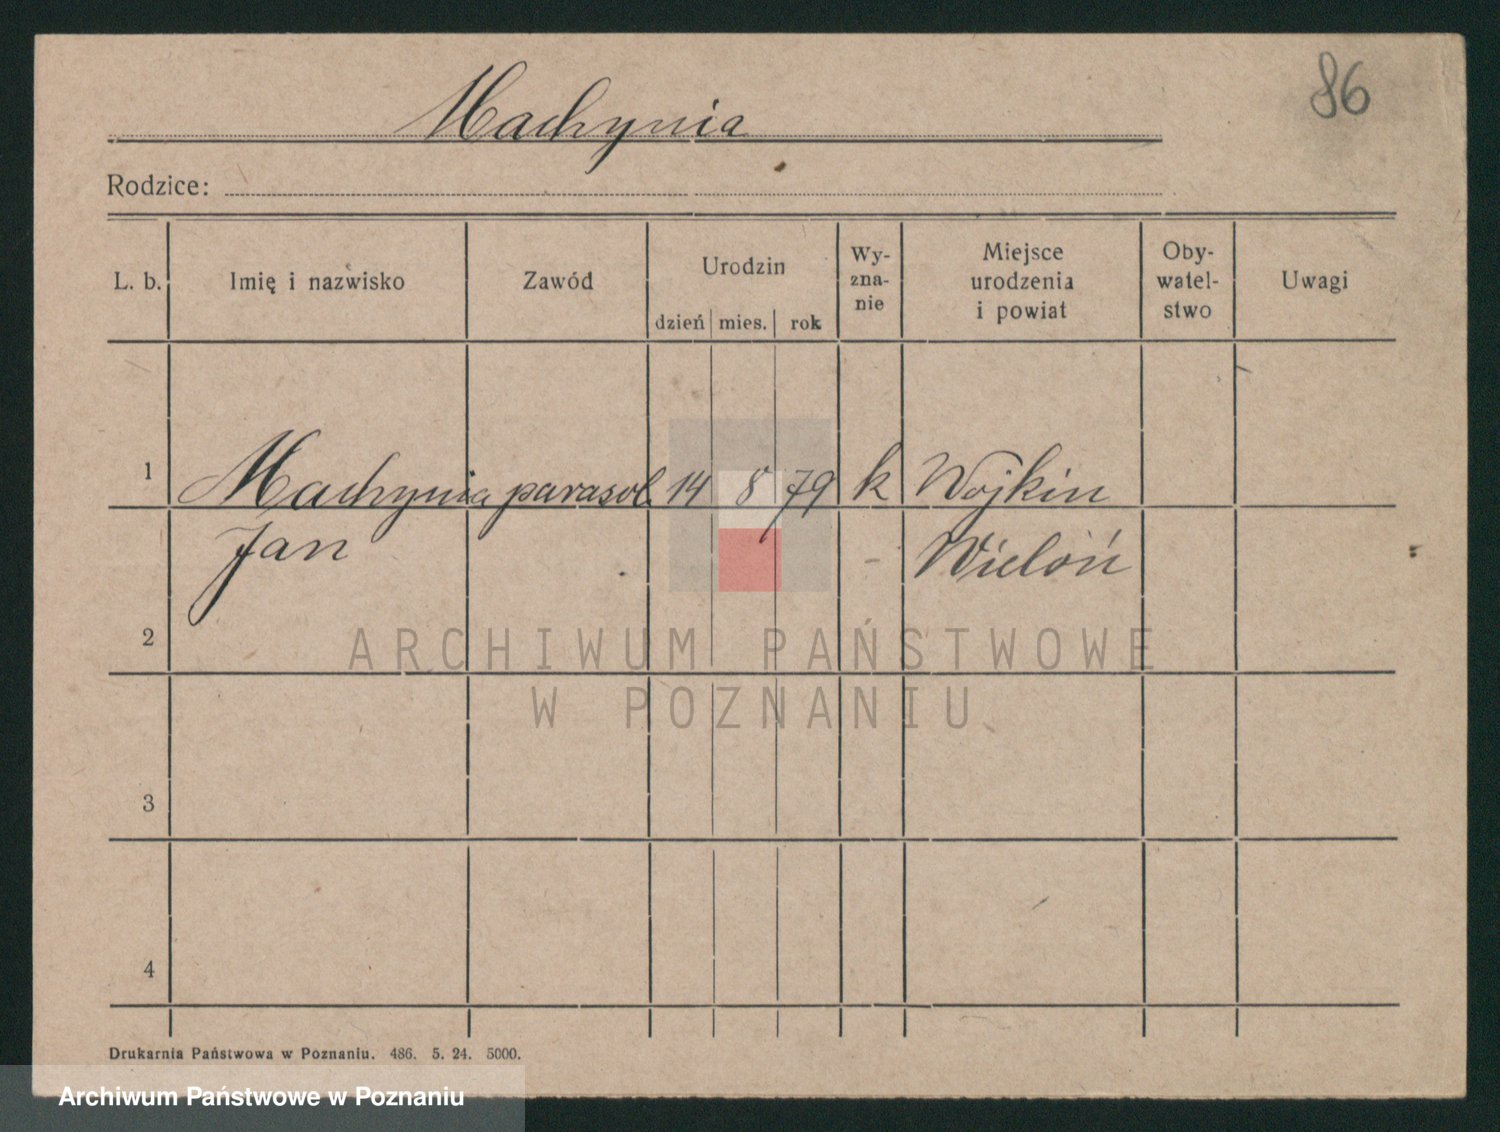 86
Machynia
Rodzice:
L. b.
Imię i nazwisko
Zawód
Urodzin
dzień mies. rok
Wy-
zna-
nie
Miejsce
urodzenia
i powiat
Oby-
watel-
stwo
Uwagi
1 Machynia parasol. 14 8 79 k Wojkin
Jan Wieloń
2
ARCHIWUM PAŃSTWOWE
W POZNANIU
3
4
Drukarnia Państwowa w Poznaniu. 486. 5. 24. 5000.
Archiwum Państwowe w Poznaniu